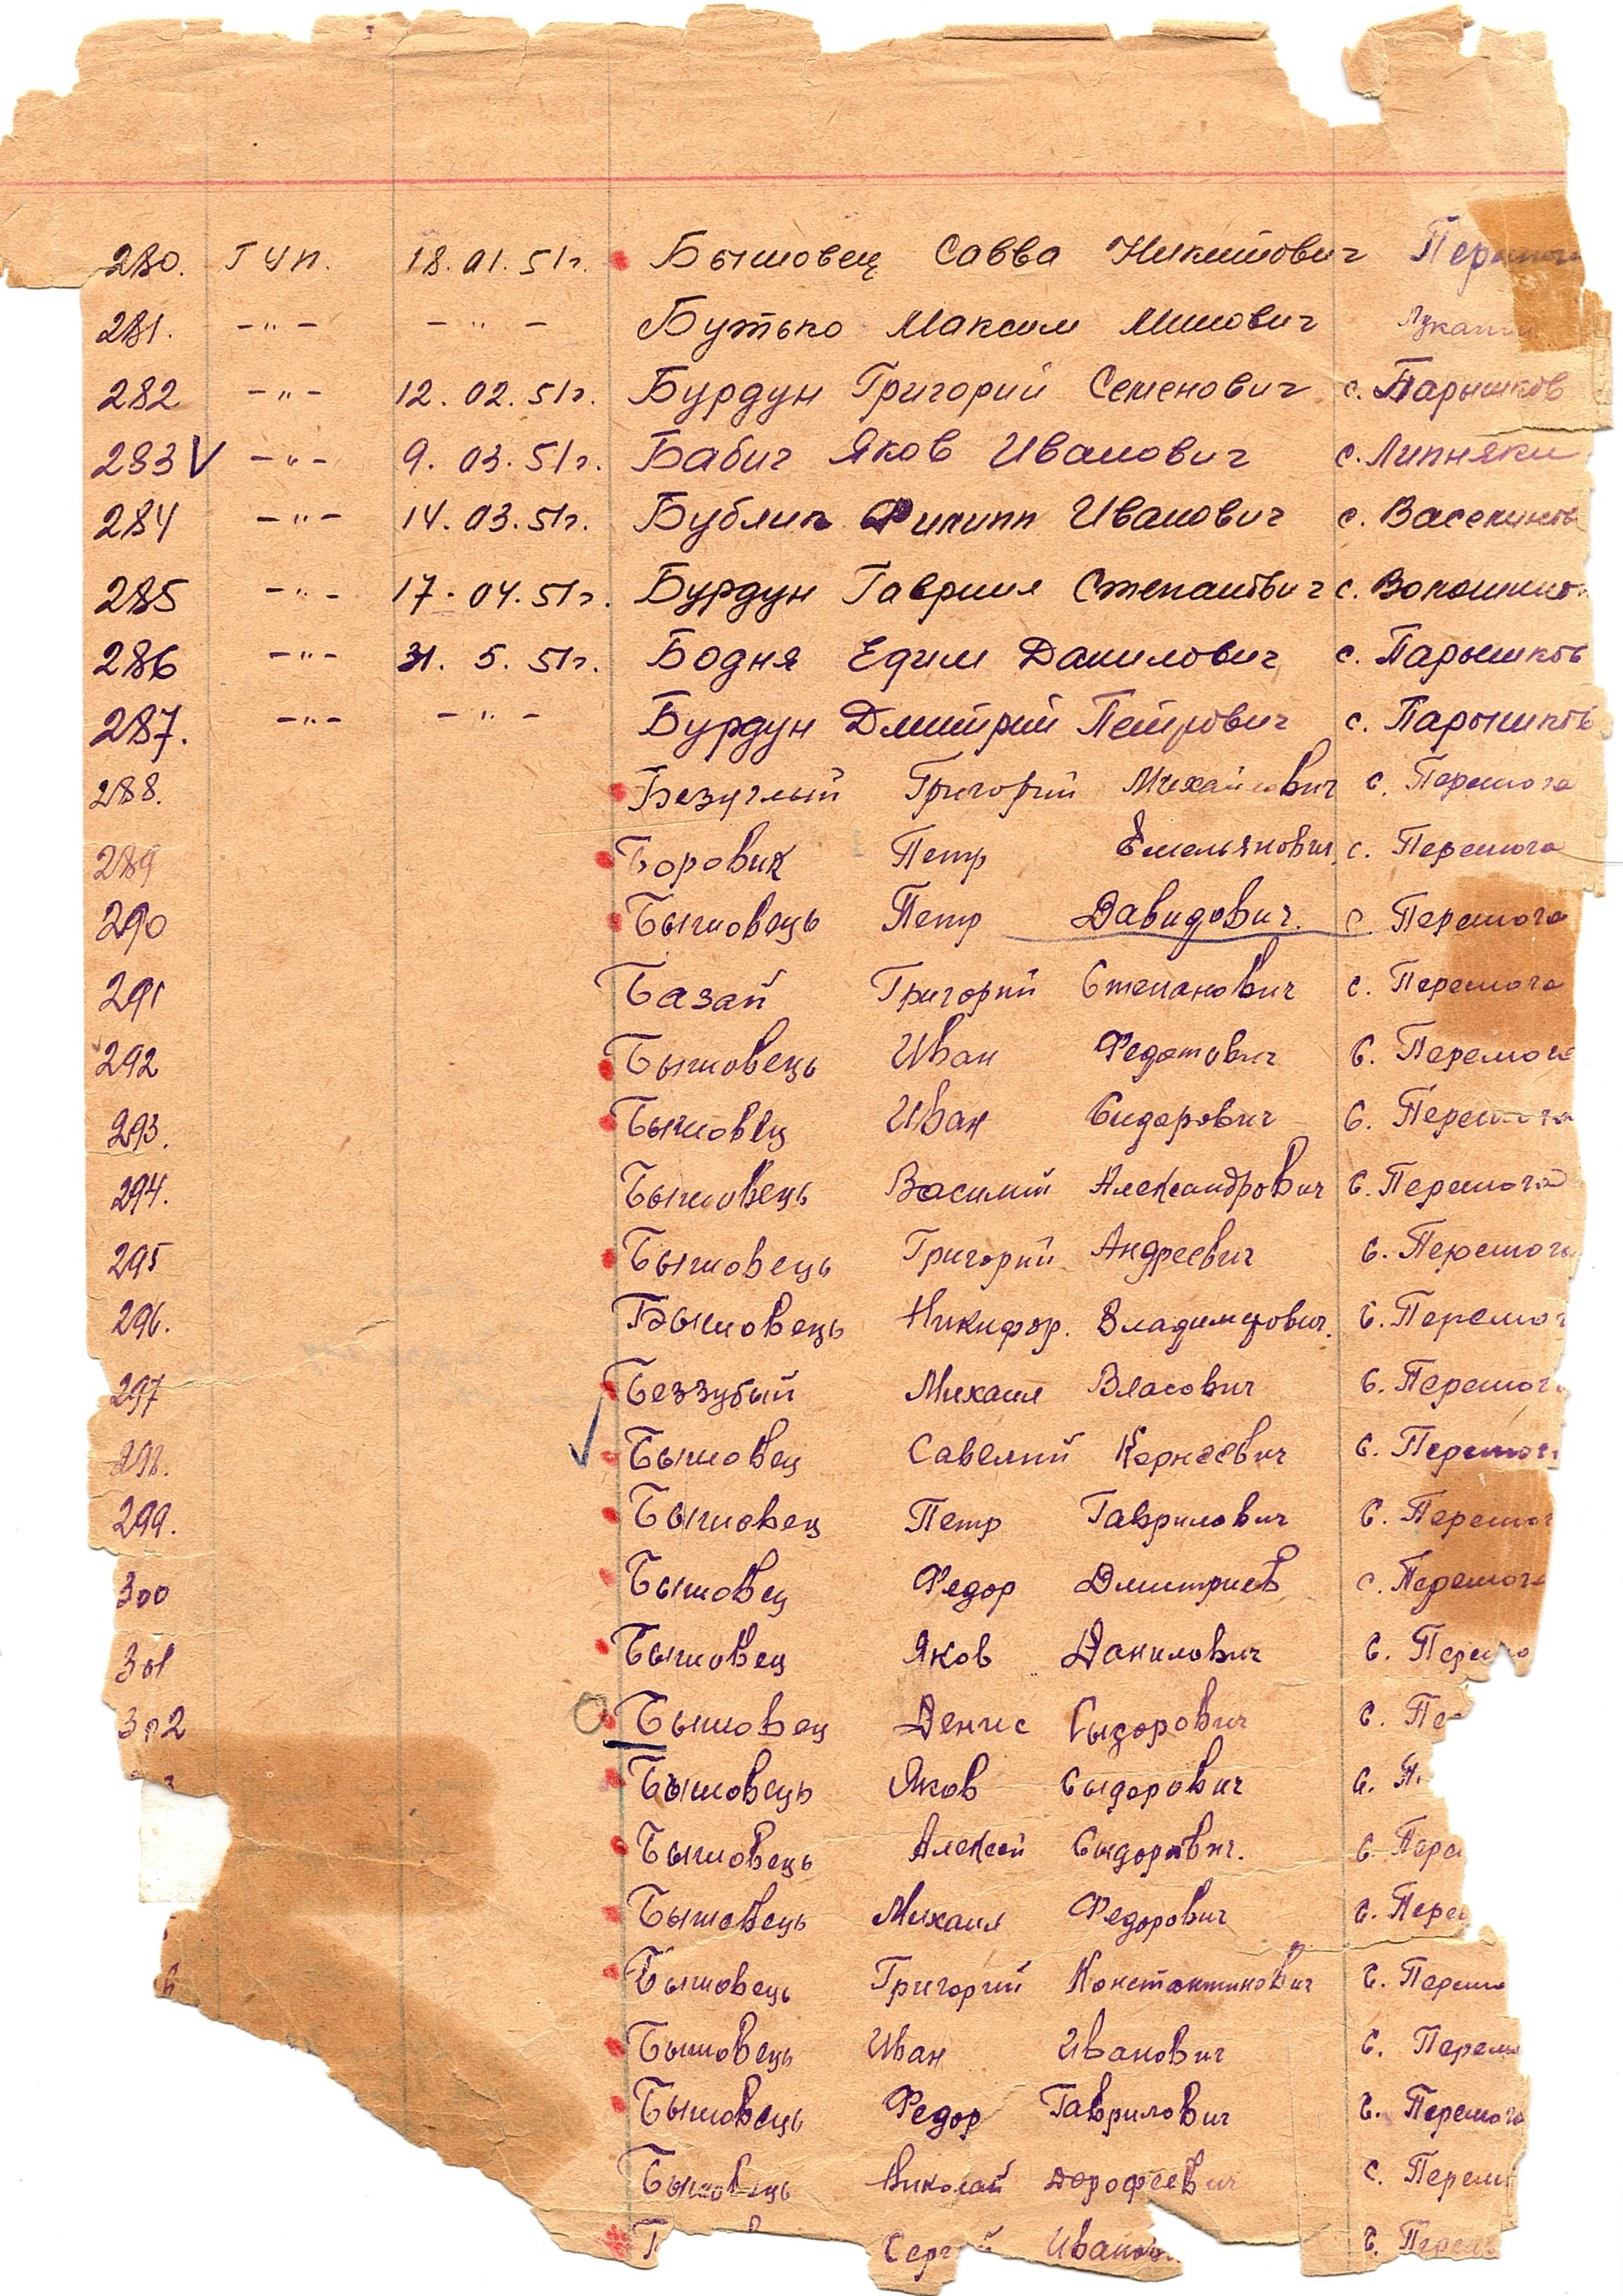 280. ГУП. 18.01.51г. Бышовец Савва Никитович
281. -"- -"- Бутько Максим Минович
282 -"- 12.02.51г. Бурдун Григорий Семенович с. Парышков
283 V -"- 9.03.51г. Бабич Яков Иванович с. Липняки
284 -"- 14.03.51г. Бублик Филипп Иванович с.
285 -"- 17.04.51г. Бурдун Гавриил Степанович с.
286 -"- 31.5.51г. Бодня Ефим Данилович с. Парышков
287. -"- -"- Бурдун Дмитрий Петрович с. Парышков
288. Безуглый Григорий Михайлович с. Перемога
289 Боровик Петр Емельянович с. Перемога
290 Бышовець Петр Давидович. с. Перемога
291 Базай Григорий Степанович с. Перемога
292 Бышовець Иван Федотович с. Перемога
293. Бышовец Иван Сидорович с. Перемога
294. Бышовець Василий Александрович с. Перемога
295 Бышовець Григорий Андреевич с. Перемога
296. Бышовець Никифор. Владимирович. с. Перемог
297 Беззубый Михаил Власович с. Перемога
298. Бышовец Савелий Корнеевич с. Перемога
299. Бышовец Петр Гаврилович с. Перемог
300 Бышовец Федор Дмитриев с. Перемога
301 Бышовец Яков Данилович с. Перемо
302 Бышовец Денис Сыдорович с. Пе
3 Бышовець Яков Сыдорович с. П
Бышовець Алексей Сыдорович. с. Пере
Бышовець Михаил Федорович с. Пере
6 Бышовець Григорий Константинович с. Перем
Бышовець Иван Иванович с. Перем
Бышовець Федор Гаврилович с. Перемога
Бышовець Николай Дорофеевич с. Перем
Сергей Иванов с. Перем